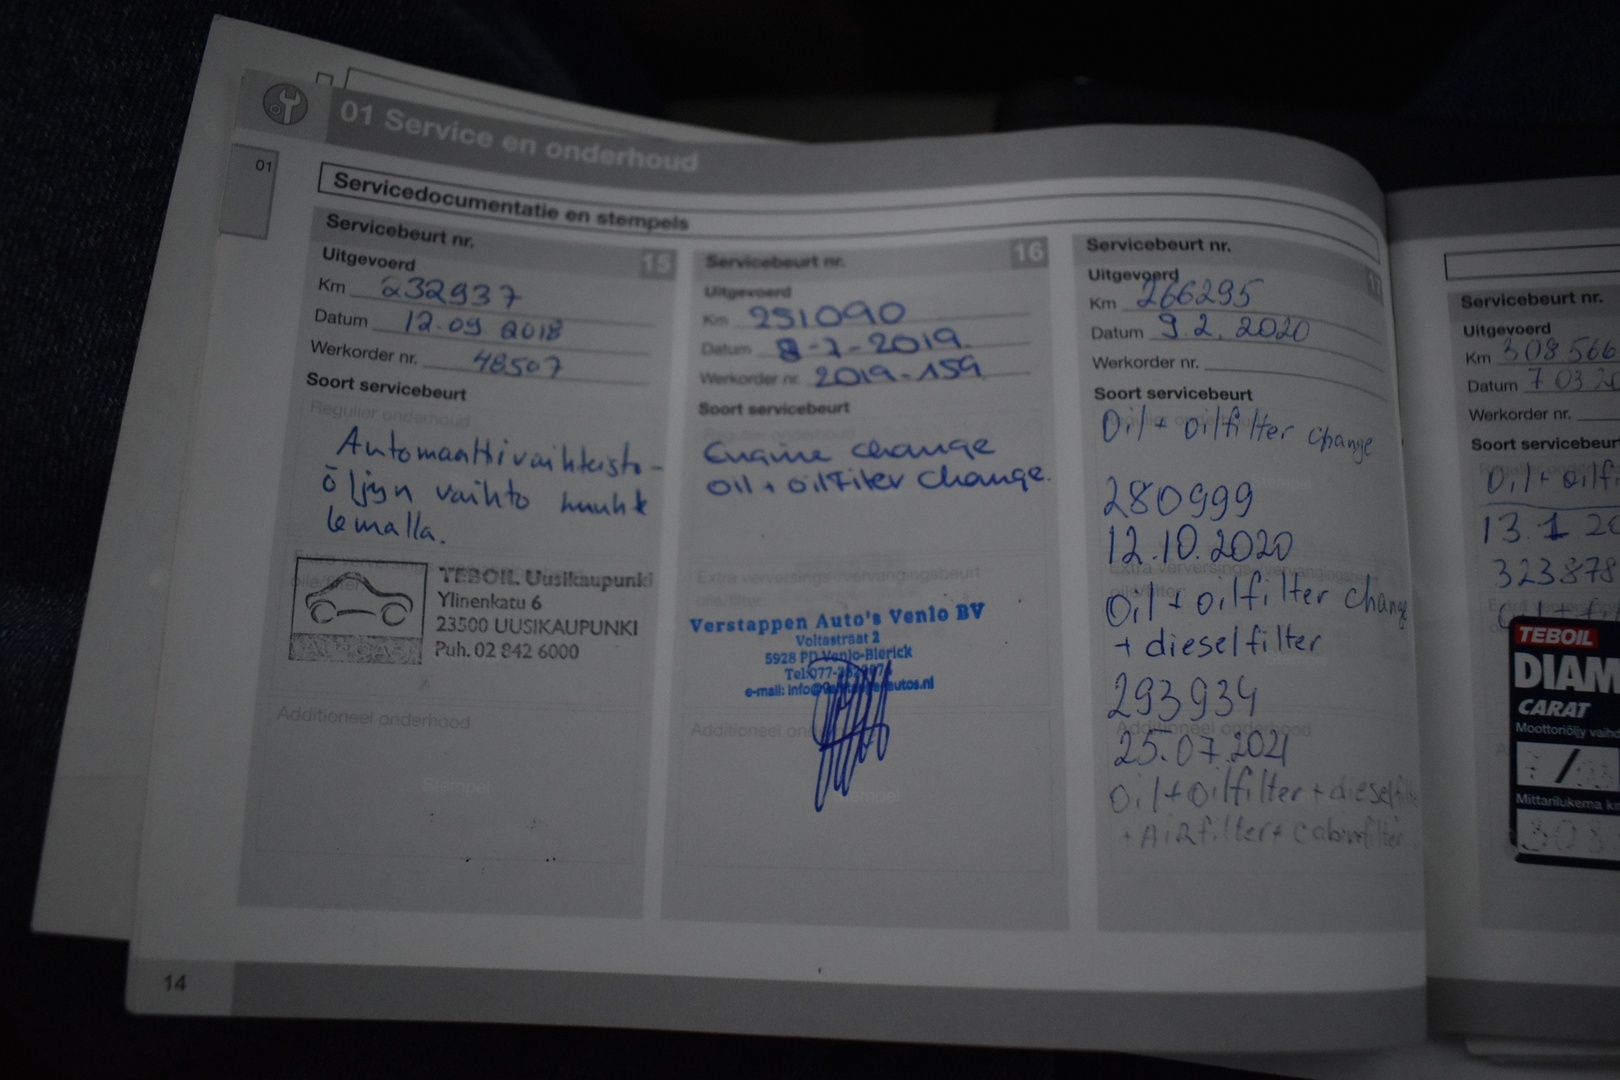 01 Service en onderhoud
01
Servicedocumentatie en stempels
Servicebeurt nr.
15
Uitgevoerd
Km 232937
Datum 12.09 2018
Werkorder nr. 48507
Soort servicebeurt
Regulier onderhoud
Automaattivaihteisto-
öljyn vaihto huuh
lemalla.
TEBOIL Uusikaupunki
Ylinenkatu 6
23500 UUSIKAUPUNKI
Puh. 02 842 6000
Additioneel onderhoud
Stempel
14
Servicebeurt nr.
16
Uitgevoerd
Km 251090
Datum 8-7-2019
Werkorder nr. 2019-159
Soort servicebeurt
Engine change
oil + oilFilter change.
Extra verversings-/vervangingsbeurt
olie/filter:
Verstappen Auto's Venlo BV
Voltastraat 2
5928 PD Venlo-Blerick
Tel:077-
e-mail: info@
autos.nl
Additioneel
Servicebeurt nr.
17
Uitgevoerd
Km 266295
Datum 9.2.2020
Werkorder nr.
Soort servicebeurt
Oil + oilfilter change
280999
12.10.2020
Oil + oilfilter change
+ dieselfilter
293934
25.07.2021
Oil + Oilfilter + diesel
+ Airfilter + cabinfilter
Servicebeurt nr.
Uitgevoerd
Km 308566
Datum 7 03
Werkorder nr.
Soort servicebeur
Oil + oilf
13.1
323878
TEBOIL
DIAM
CARAT
Moottoriöljy vaihd
Mittarilukema km
308